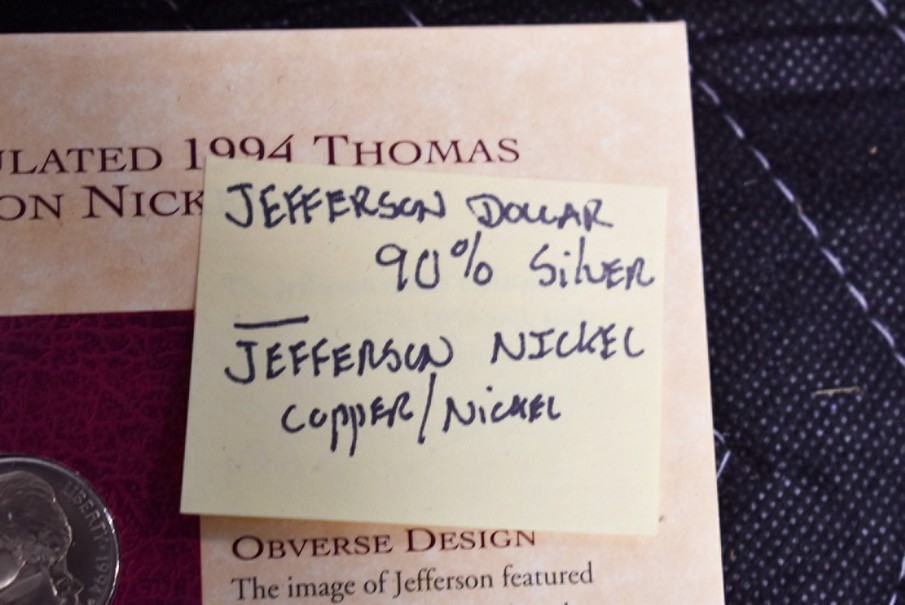 ULATED 1994 THOMAS
ON NICK
JEFFERSON DOLLAR
90% SilVER
JEFFERSON NICKEL
COPPER/NICKEL
LIBERTY
OBVERSE DESIGN
The image of Jefferson featured